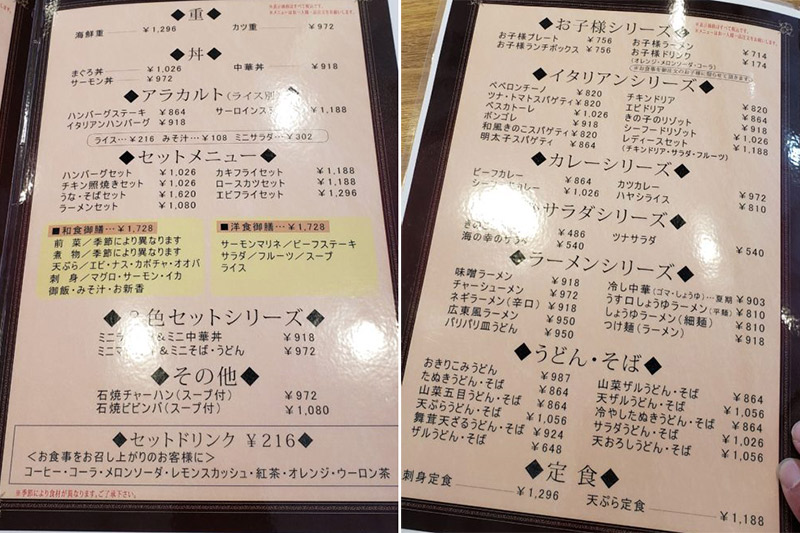 ◆重◆
海鮮重 ￥1,296 カツ重 ￥972
◆丼◆
まぐろ丼 ￥1,026 中華丼 ￥918
サーモン丼 ￥972
◆アラカルト(ライス別)
ハンバーグステーキ ￥864 サーロインス ￥1,188
イタリアンハンバーグ ￥918
ライス…￥216 みそ汁…￥108 ミニサラダ…￥302
◆セットメニュー◆
ハンバーグセット ￥1,026 カキフライセット ￥1,188
チキン照焼きセット ￥1,026 ロースカツセット ￥1,188
うな・そばセット ￥1,620 エビフライセット ￥1,296
ラーメンセット ￥1,080
■和食御膳…￥1,728
前 菜／季節により異なります
煮 物／季節により異なります
天ぷら／エビ・ナス・カボチャ・オオバ
刺 身／マグロ・サーモン・イカ
御飯・みそ汁・お新香
■洋食御膳…￥1,728
サーモンマリネ／ビーフステーキ
サラダ／フルーツ／スープ
ライス
色セットシリーズ◆
＆ミニ中華丼 ￥918
＆ミニそば・うどん ￥972
◆その他◆
石焼チャーハン(スープ付) ￥972
石焼ビビンバ(スープ付) ￥1,080
◆セットドリンク ￥216◆
＜お食事をお召し上がりのお客様に＞
コーヒー・コーラ・メロンソーダ・レモンスカッシュ・紅茶・オレンジ・ウーロン茶
※季節により食材が異なります。ご了承下さい。
◆お子様シリーズ◆
お子様プレート ￥756 お子様ラーメン ￥714
お子様ランチボックス ￥756 お子様ドリンク ￥174
(オレンジ・メロンソーダ・コーラ)
◆イタリアンシリーズ◆
ペペロンチーノ ￥820 チキンドリア ￥820
ツナ・トマトスパゲティ ￥820 エビドリア ￥864
ペスカトーレ ￥1,026 きの子のリゾット ￥918
ボンゴレ ￥918 シーフードリゾット ￥1,026
和風きのこスパゲティ ￥820 レディースセット ￥1,188
明太子スパゲティ ￥864 (チキンドリア・サラダ・フルーツ)
◆カレーシリーズ◆
ビーフカレー ￥864 カツカレー ￥972
￥1,026 ハヤシライス ￥810
サラダシリーズ◆
￥486 ツナサラダ ￥540
海の幸の ￥540
◆ラーメンシリーズ◆
味噌ラーメン ￥918 冷し中華(ゴマ・しょうゆ)…夏期 ￥903
チャーシューメン ￥972 うす口しょうゆラーメン(平麺) ￥810
ネギラーメン(辛口) ￥918 しょうゆラーメン(細麺) ￥810
広東風ラーメン ￥950 つけ麺(ラーメン) ￥918
パリパリ皿うどん ￥950
◆うどん・そば◆
おきりこみうどん ￥987 山菜ザルうどん・そば ￥864
たぬきうどん・そば ￥864 天ザルうどん・そば ￥1,056
山菜五目うどん・そば ￥864 冷やしたぬきうどん・そば ￥864
天ぷらうどん・そば ￥1,056 サラダうどん・そば ￥1,026
舞茸天ざるうどん・そば ￥924 天おろしうどん・そば ￥1,056
ザルうどん・そば ￥648
◆定食◆
刺身定食 ￥1,296 天ぷら定食 ￥1,188